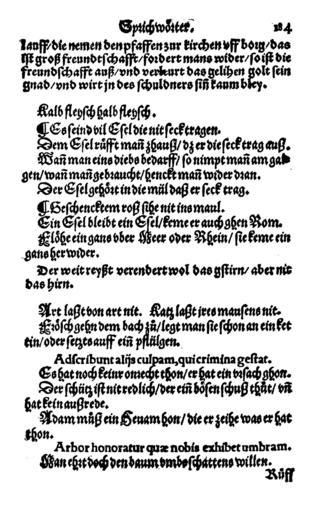 Sprichwörter. 184
kauff / die nemen den pfaffen zur kirchen vff borg / das
ist groß freundtschafft / fordert mans wider / so ist die
freundschafft auß / vnd verleurt das gelihen golt sein
gnad / vnd wirt jn des schuldners siñ kaum bley.
Kalb fleysch halb fleysch.
¶ Es seind vil Esel die nit seck tragen.
Dem Esel rüfft mañ zhauß / dz er die seck trag auß.
Wañ man eins diebs bedarff / so nimpt mañ am gal-
gen / wañ mañ gebraucht / henckt mañ wider dran.
Der Esel gehört in die mül daß er seck trag.
¶ Geschencktem roß sihe nit ins maul.
Ein Esel bleibt ein Esel / keme er auch ghen Rom.
Flöhe ein gans vber Meer oder Rhein / sie keme ein
gans her wider.
Der weit reyßt verendert wol das gstirn / aber nit
das hirn.
Art laßt von art nit. Katz laßt jres mausens nit.
Frösch gehn dem bach zů / legt man sie schon an ein ket
tin / oder setzts auff eiñ pflülgen.
Adscribunt alijs culpam, qui crimina gestat.
Es hat noch keinr omecht thon / er hat ein vrsach ghon.
Der schütz ist nit redlich / der eiñ bösen schuß thůt / vñ
hat kein außrede.
Adam můß ein Heuam hon / die er zeihe was er hat
thon.
Arbor honoratur quæ nobis exhibet umbram.
Man ehrt doch den baum vmbs schattens willen.
Rüff